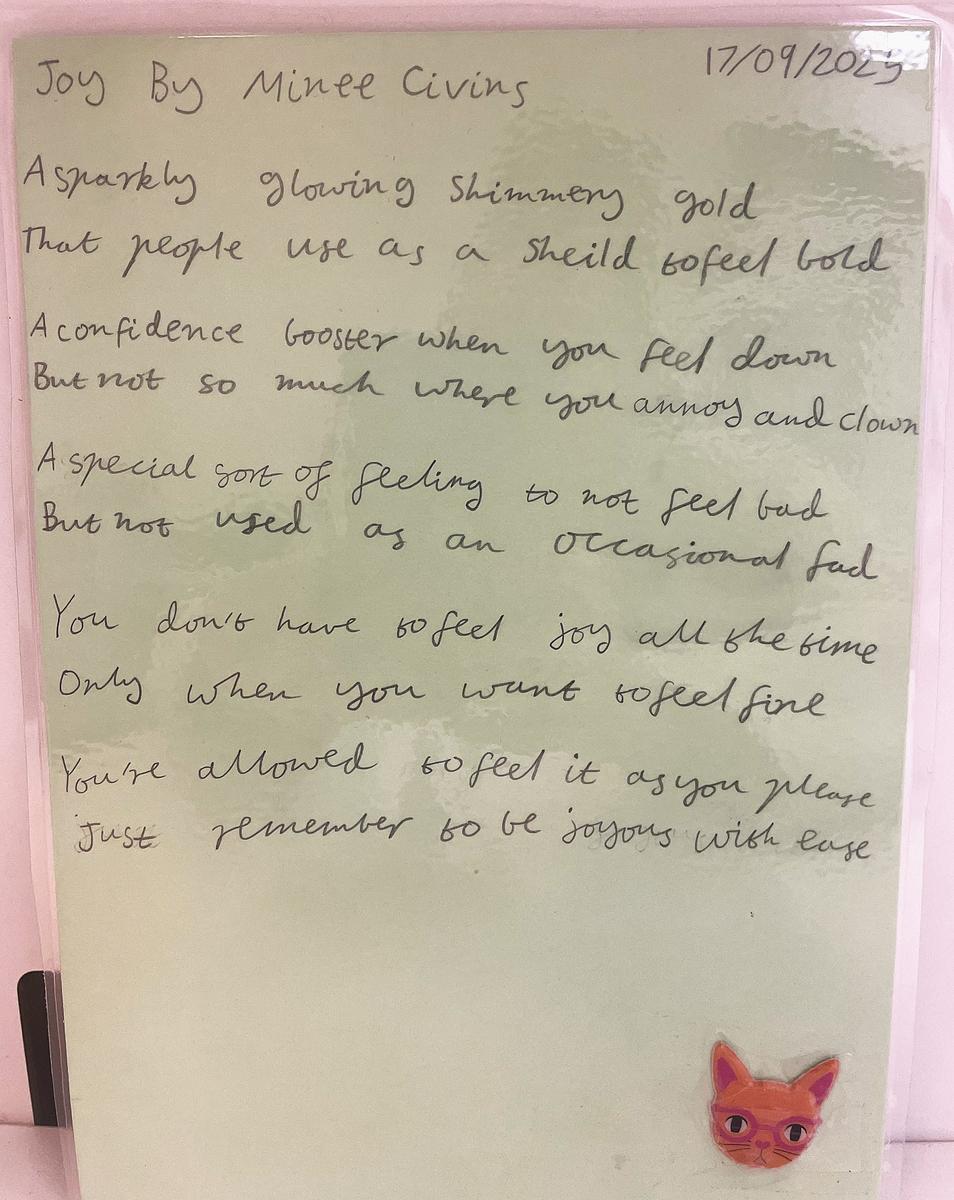 Joy By Minee Civins
17/09/2025
A sparkly glowing shimmery gold
That people use as a sheild to feel bold
A confidence booster when you feel down
But not so much where you annoy and clown
A special sort of feeling to not feel bad
But not used as an occasional fad
You don't have to feel joy all the time
Only when you want to feel fine
You're allowed to feel it as you please
Just remember to be joyous with ease